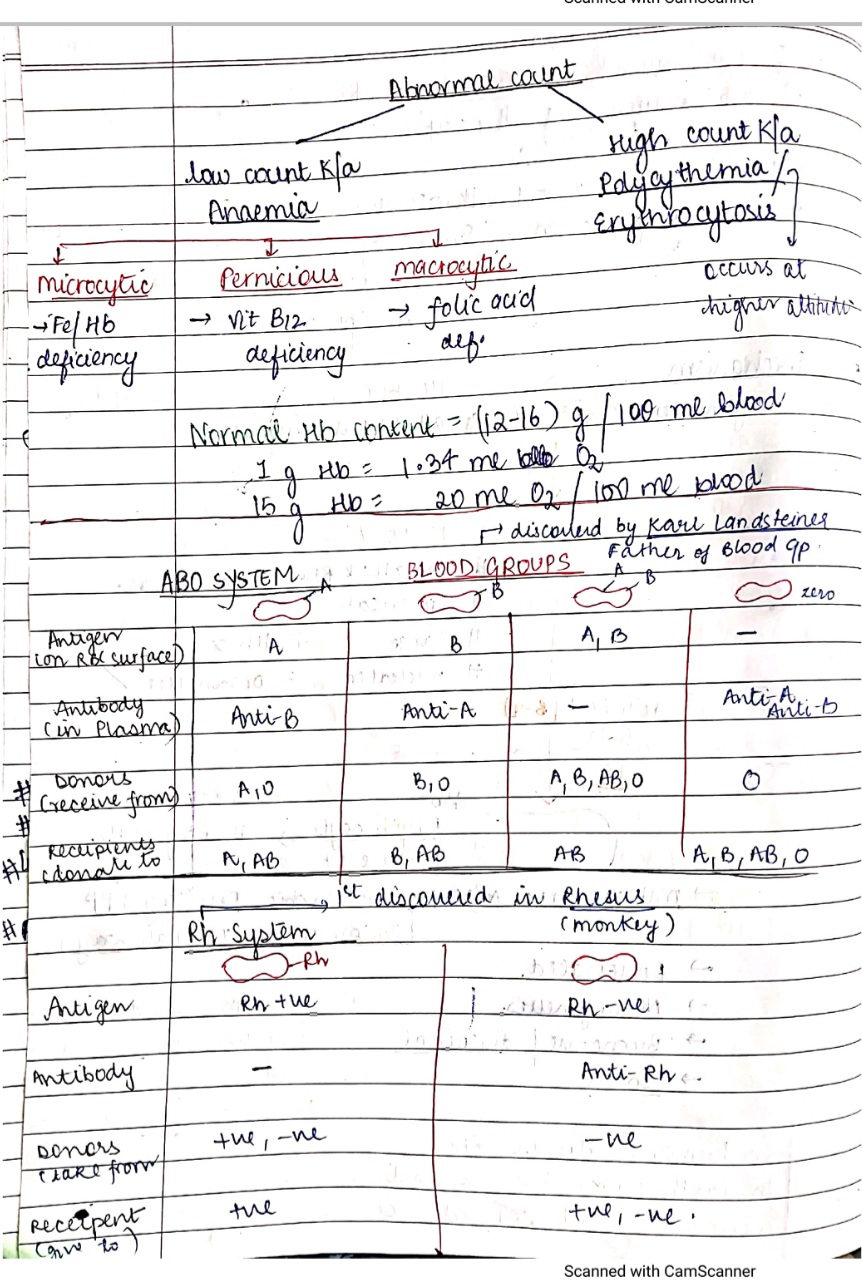 Abnormal count
low count K/a
Anaemia
High count K/a
Polycythemia /
Erythrocytosis
occurs at
higher
microcytic
→ Fe/Hb
deficiency
Pernicious
→ Vit B12
deficiency
macrocytic
→ folic acid
def.
Normal Hb content = (12-16) g / 100 ml blood
1 g Hb = 1.34 ml O2
15 g Hb = 20 ml O2 / 100 ml blood
→ discovered by Karl Landsteiner
Father of Blood gp.
ABO SYSTEM BLOOD GROUPS
A B A B zero
Antigen
(on RBC surface) A B A, B —
Antibody
(in Plasma) Anti-B Anti-A — Anti-A, Anti-B
# Donors
(receive from) A, O B, O A, B, AB, O O
#
# Recipients
(donate to A, AB B, AB AB A, B, AB, O
→ 1st discovered in Rhesus
(monkey)
# Rh System
Rh
Antigen Rh +ve Rh -ve
Antibody — Anti-Rh
Donors
(take from +ve, -ve -ve
Receipent
(give to) +ve +ve, -ve.
Scanned with CamScanner
Scanned with CamScanner